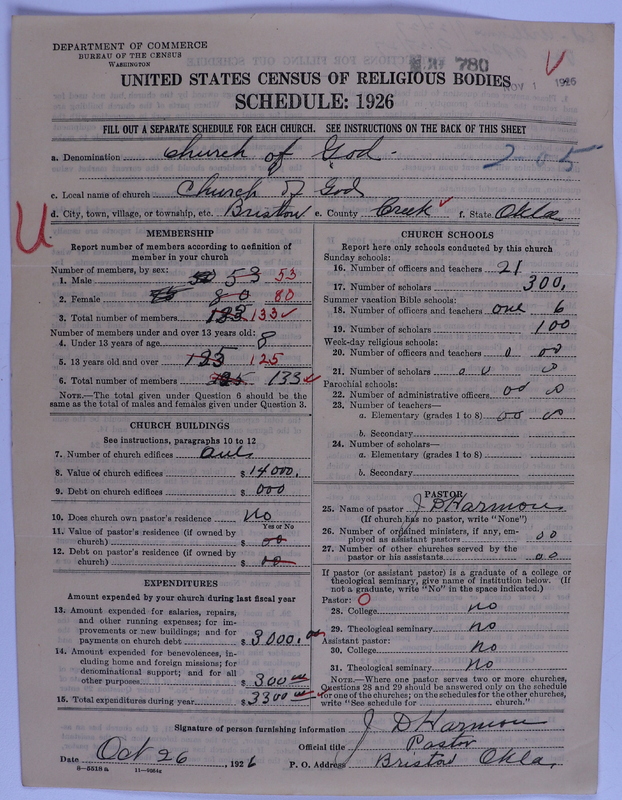 DEPARTMENT OF COMMERCE
BUREAU OF THE CENSUS
WASHINGTON
780
NOV 1 1926
UNITED STATES CENSUS OF RELIGIOUS BODIES
SCHEDULE: 1926
FILL OUT A SEPARATE SCHEDULE FOR EACH CHURCH. SEE INSTRUCTIONS ON THE BACK OF THIS SHEET
a. Denomination Church of God.
205
c. Local name of church Church of God
d. City, town, village, or township, etc. Bristow e. County Creek f. State Okla.
MEMBERSHIP
Report number of members according to definition of
member in your church
Number of members, by sex:
1. Male 53 53
2. Female 80 80
3. Total number of members 133 133
Number of members under and over 13 years old:
4. Under 13 years of age 8
5. 13 years old and over 125 125
6. Total number of members 133
NOTE.—The total given under Question 6 should be
same as the total of males and females given under Question 3.
CHURCH BUILDINGS
See instructions, paragraphs 10 to 12
7. Number of church edifices
8. Value of church edifices $ 14000.
9. Debt on church edifices $ 000
10. Does church own pastor's residence No
Yes or No
11. Value of pastor's residence (if owned by
church) $ 00
12. Debt on pastor's residence (if owned by
church) $ 00
EXPENDITURES
Amount expended by your church during last fiscal year
13. Amount expended for salaries, repairs,
and other running expenses; for im-
provements or new buildings; and for
payments on church debt $ 3000.00
14. Amount expended for benevolences, in-
cluding home and foreign missions; for
denominational support; and for all
other purposes $ 300 00
15. Total expenditures during year $ 3300 00
CHURCH SCHOOLS
Report here only schools conducted by this church
Sunday schools:
16. Number of officers and teachers 21
17. Number of scholars 300,
Summer vacation Bible schools:
18. Number of officers and teachers one 6
19. Number of scholars 100
Week-day religious schools:
20. Number of officers and teachers 0 00
21. Number of scholars 0 0 00
Parochial schools:
22. Number of administrative officers 00 00
23. Number of teachers—
a. Elementary (grades 1 to 8) 00 00
b. Secondary
24. Number of scholars—
a. Elementary (grades 1 to 8)
b. Secondary
PASTOR
25. Name of pastor J D Harmon
(If church has no pastor, write "None")
26. Number of ordained ministers, if any, em-
ployed as assistant pastors 00
27. Number of other churches served by the
pastor or his assistants 00
If pastor (or assistant pastor) is a graduate of a college or
theological seminary, give name of institution below. (If
not a graduate, write "No" in the space indicated.)
Pastor: O
28. College no
29. Theological seminary no
Assistant pastor:
30. College no
31. Theological seminary no
NOTE.—Where one pastor serves two or more churches,
Questions 28 and 29 should be answered only on the schedule
for one of the churches; on the schedules for the other churches,
write "See schedule for church."
Signature of person furnishing information J D Harmon
Official title Pastor
Date Oct 26, 1926 P. O. Address Bristow Okla.
8—5518a 11—9064c